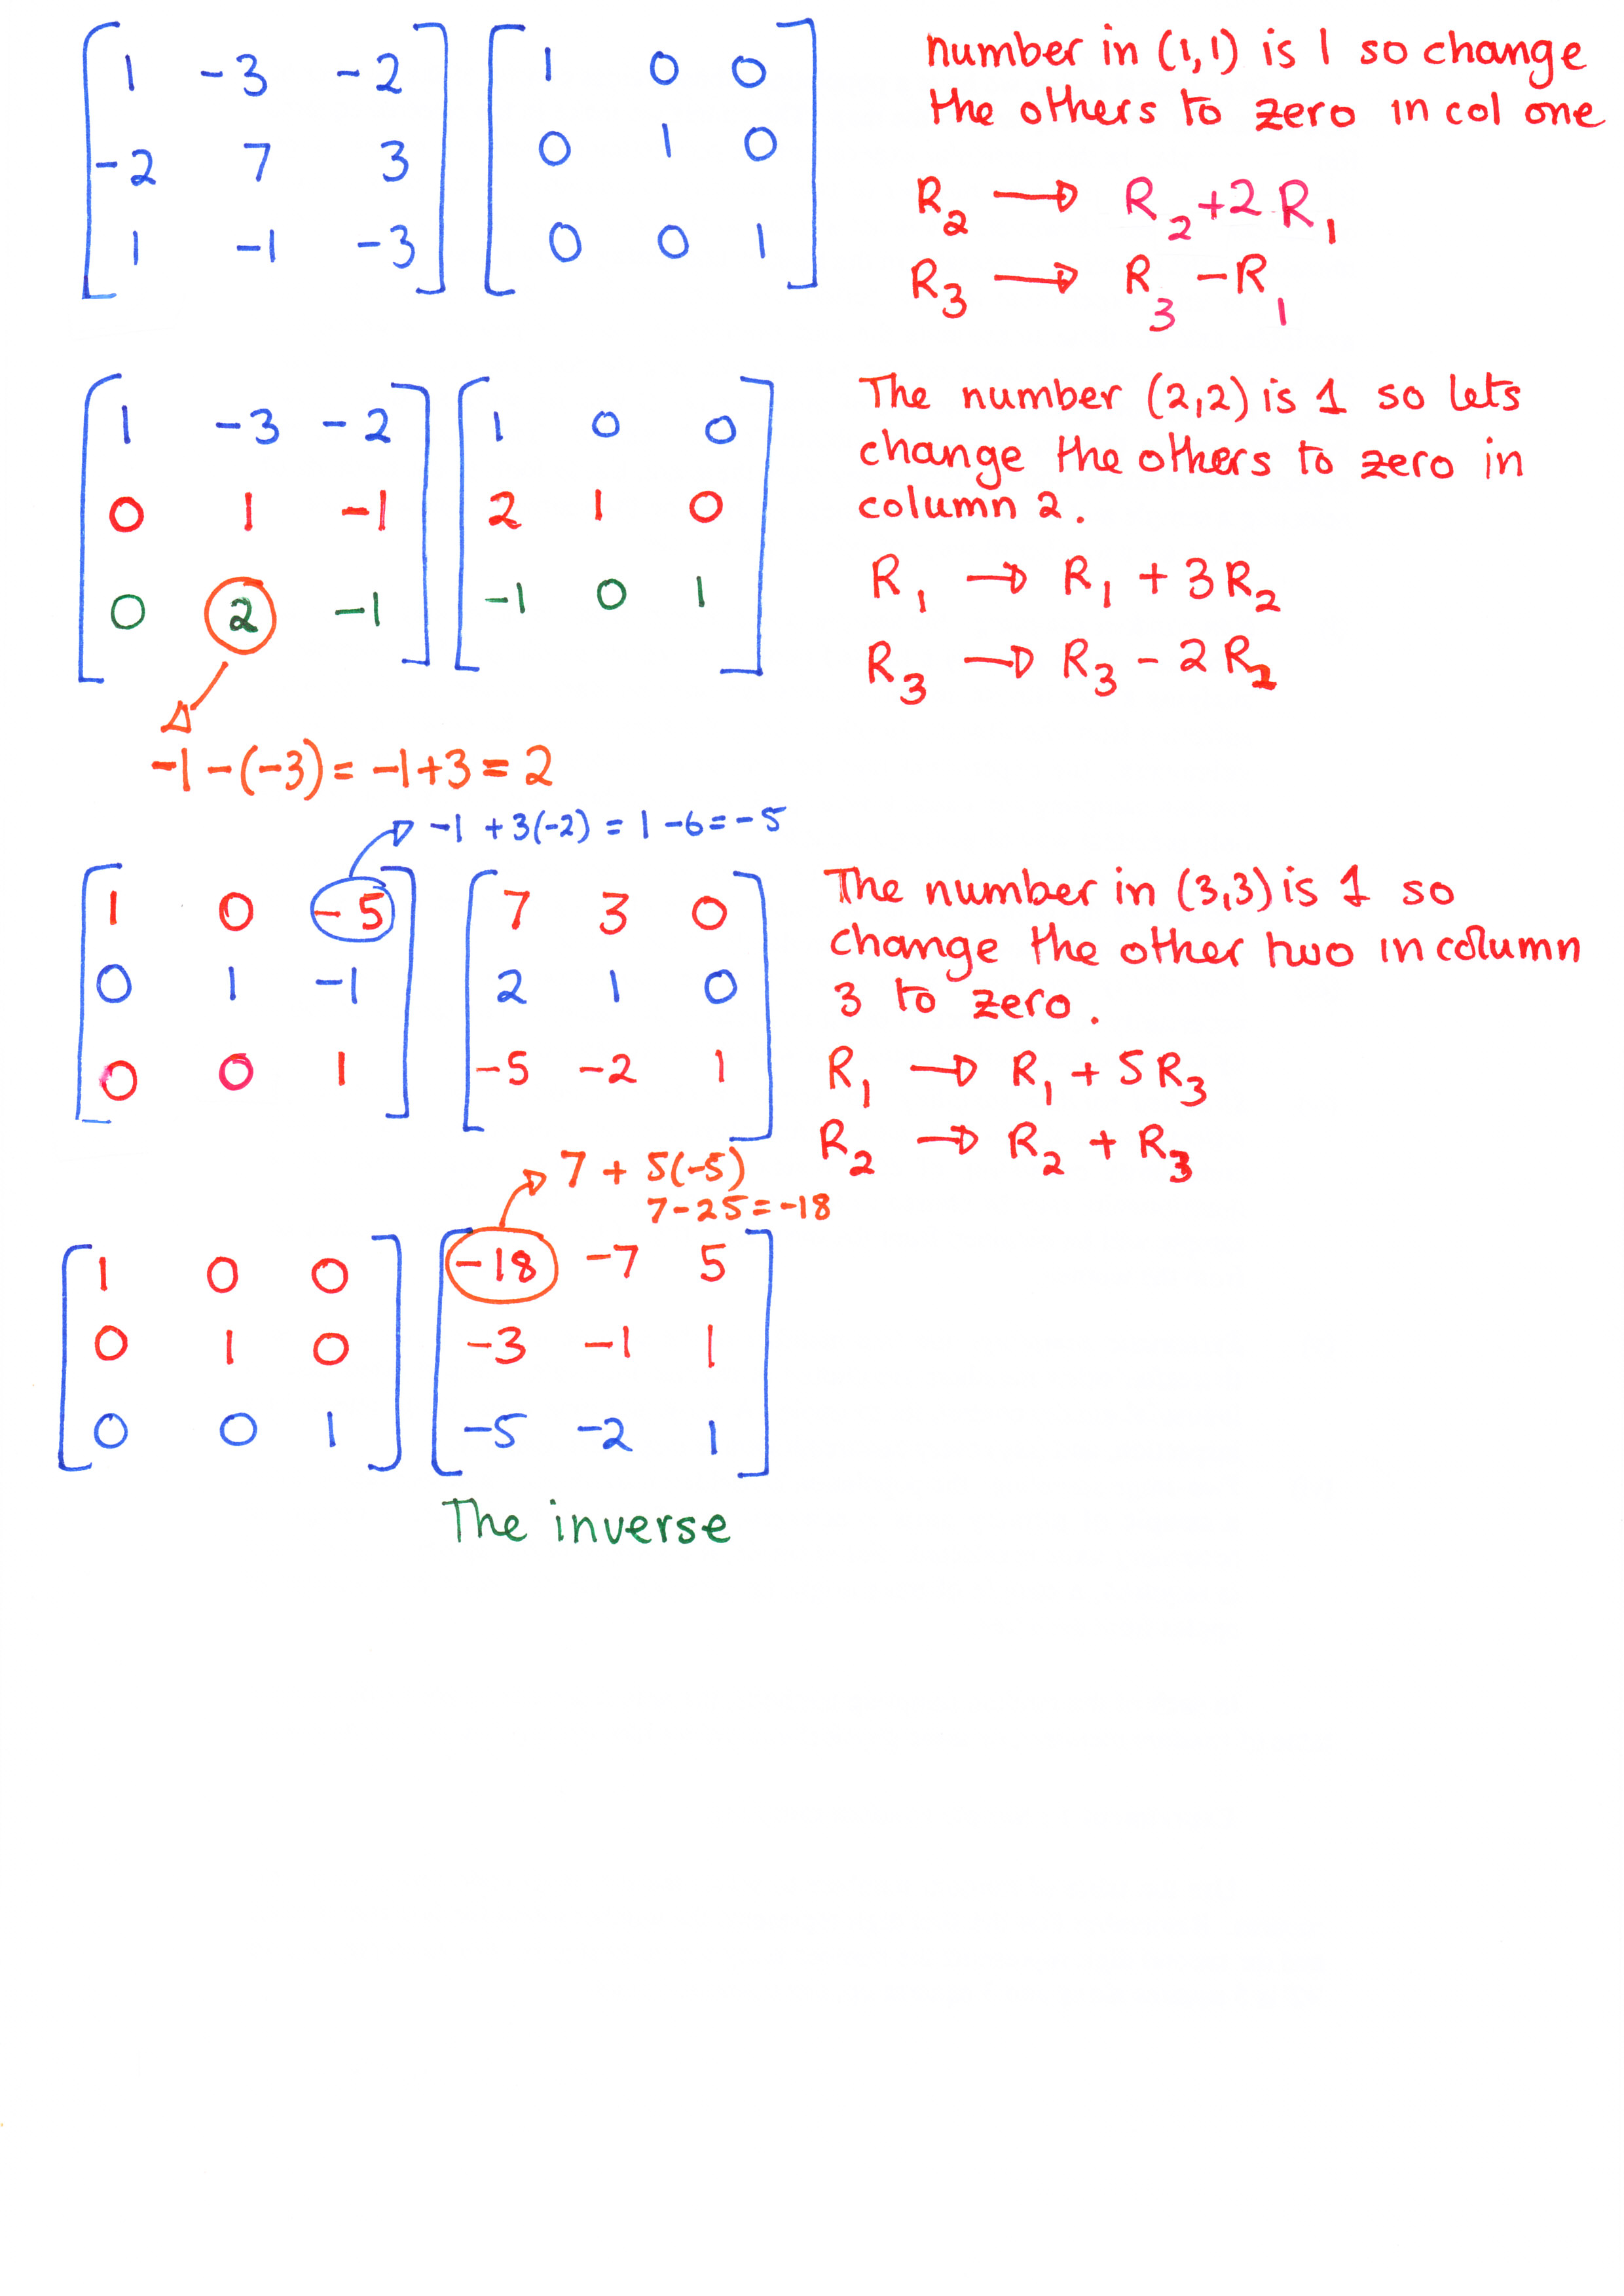 1 -3 -2 1 0 0
-2 7 3 0 1 0
1 -1 -3 0 0 1
number in (1,1) is 1 so change
the others to zero in col one
R2 → R2 +2 R1
R3 → R3 - R1
1 -3 -2 1 0 0
0 1 -1 2 1 0
0 2 -1 -1 0 1
The number (2,2) is 1 so lets
change the others to zero in
column 2.
R1 → R1 + 3R2
R3 → R3 - 2R2
-1-(-3) = -1+3 = 2
-1 + 3(-2) = 1 - 6 = -5
1 0 -5 7 3 0
0 1 -1 2 1 0
0 0 1 -5 -2 1
The number in (3,3) is 1 so
change the other two in column
3 to zero.
R1 → R1 + 5R3
R2 → R2 + R3
7 + 5(-5)
7-25 = -18
1 0 0 -18 -7 5
0 1 0 -3 -1 1
0 0 1 -5 -2 1
The inverse